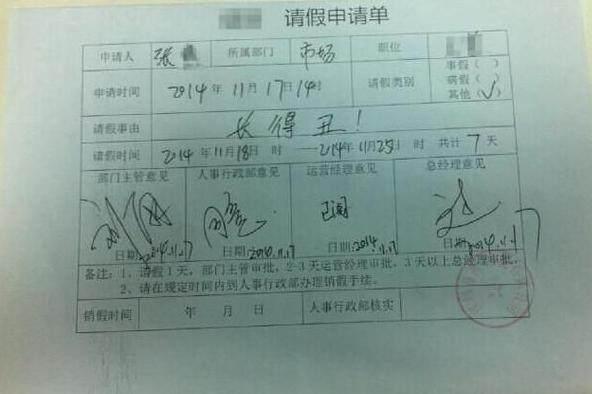 请假申请单
申请人 张 所属部门 市场 职位
申请时间 2014年11月17日14时 请假类别 事假( ) 病假( ) 其他(√)
请假事由 长得丑!
请假时间 2014年11月18日 时 — 2014年11月25日 时 共计 7 天
部门主管意见 人事行政部意见 运营经理意见 总经理意见
已阅
日期:2014.11.17 日期:2014.11.17 日期:2014.11.17 日期:2014.11.17
备注:1、请假1天,部门主管审批,2-3天运营经理审批,3天以上总经理审批,
2、请在规定时间内到人事行政部办理销假手续。
销假时间 年 月 日 人事行政部核实